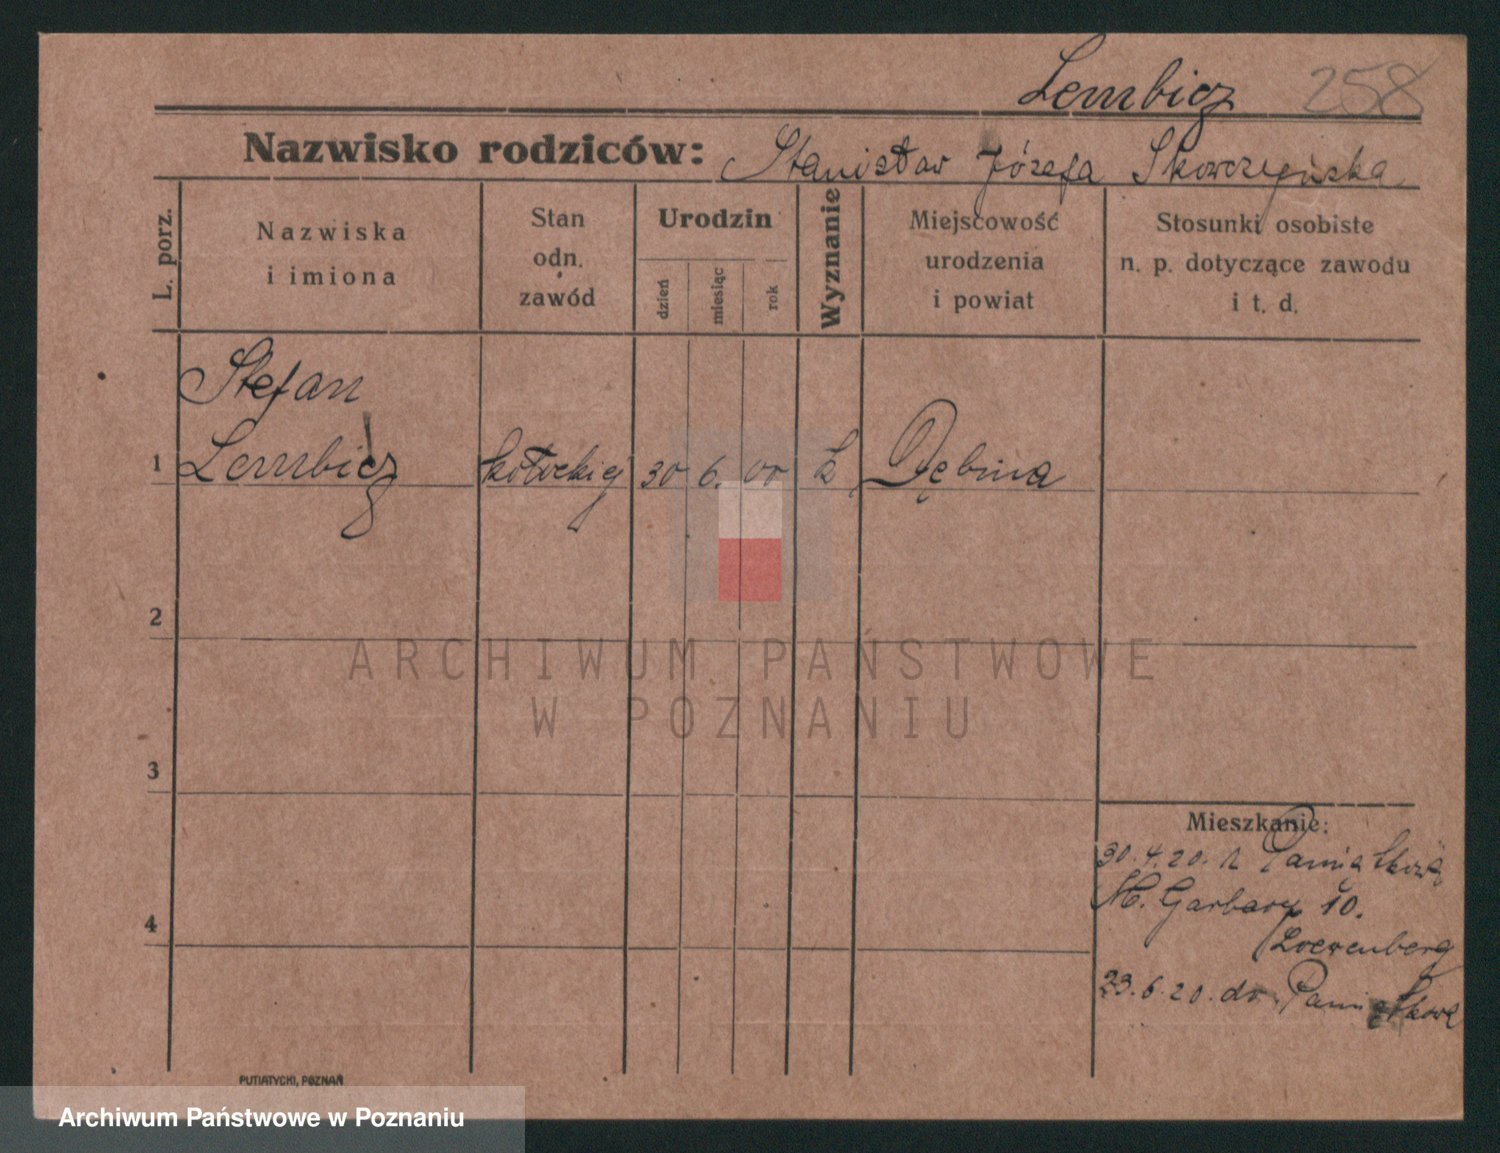 Lembicz 258
Nazwisko rodziców: Stanisław Józefa Skowrzyńska
L. porz.
Nazwiska
i imiona
Stan
odn.
zawód
Urodzin
dzień
miesiąc
rok
Wyznanie
Miejscowość
urodzenia
i powiat
Stosunki osobiste
n. p. dotyczące zawodu
i t. d.
Stefan
1 Lembicz 30 6. 00 k Dębina
2
ARCHIWUM PAŃSTWOWE
W POZNANIU
3
Mieszkanie:
30.4.20. z Pamiątkowa
M. Garbary 10.
Loewenberg
4
23.6.20. do Pamiątkowa
PUTIATYCKI, POZNAŃ
Archiwum Państwowe w Poznaniu